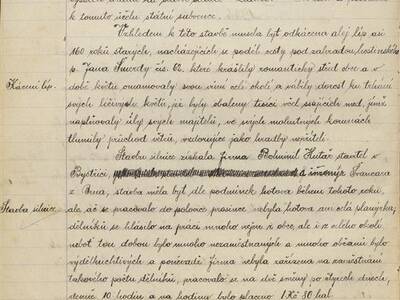 k tomuto účelu státní subvence.
Vzhledem k této stavbě musela být odkácena alej lip asi
160 roků starých, nacházejících se podél cesty pod zahradou hostinského
Kácení lip.
p. Jana Smrdy čís. 62, které krášlily romantický střed obce a v
době květu omamovaly svou vůní celé okolí a vábily dorost ku trhání
svých léčivých květů, jež byly obaleny tisíci včel ssajících med, jímž
naplňovaly úly svých majitelů, ve svých mohutných korunách
tlumily průchod větrů, vzdorujíce jako hradby
Stavbu silnice získala firma Bohumil Hutář stavitel v
Bystřici, a Švancara
z Brna, stavba měla být dle podmínek hotova během tohoto roku,
Stavba silnice.
ale, ač se pracovalo do polovice prosince nebyla hotova ani celá planýrka,
dělníků se hlásilo na práci mnoho nejen z obce, ale i z celého okolí
neboť tou dobou bylo mnoho nezaměstnaných a mnoho občanů bylo
výdělkuchtivých a poněvadž firma nebyla zařízena na zaměstnání
takového počtu dělníků, pracovalo se na dvě směny po čtyřech dnech,
denně 10 hodin a na hodinu bylo placeno 1 Kč 80 hal.